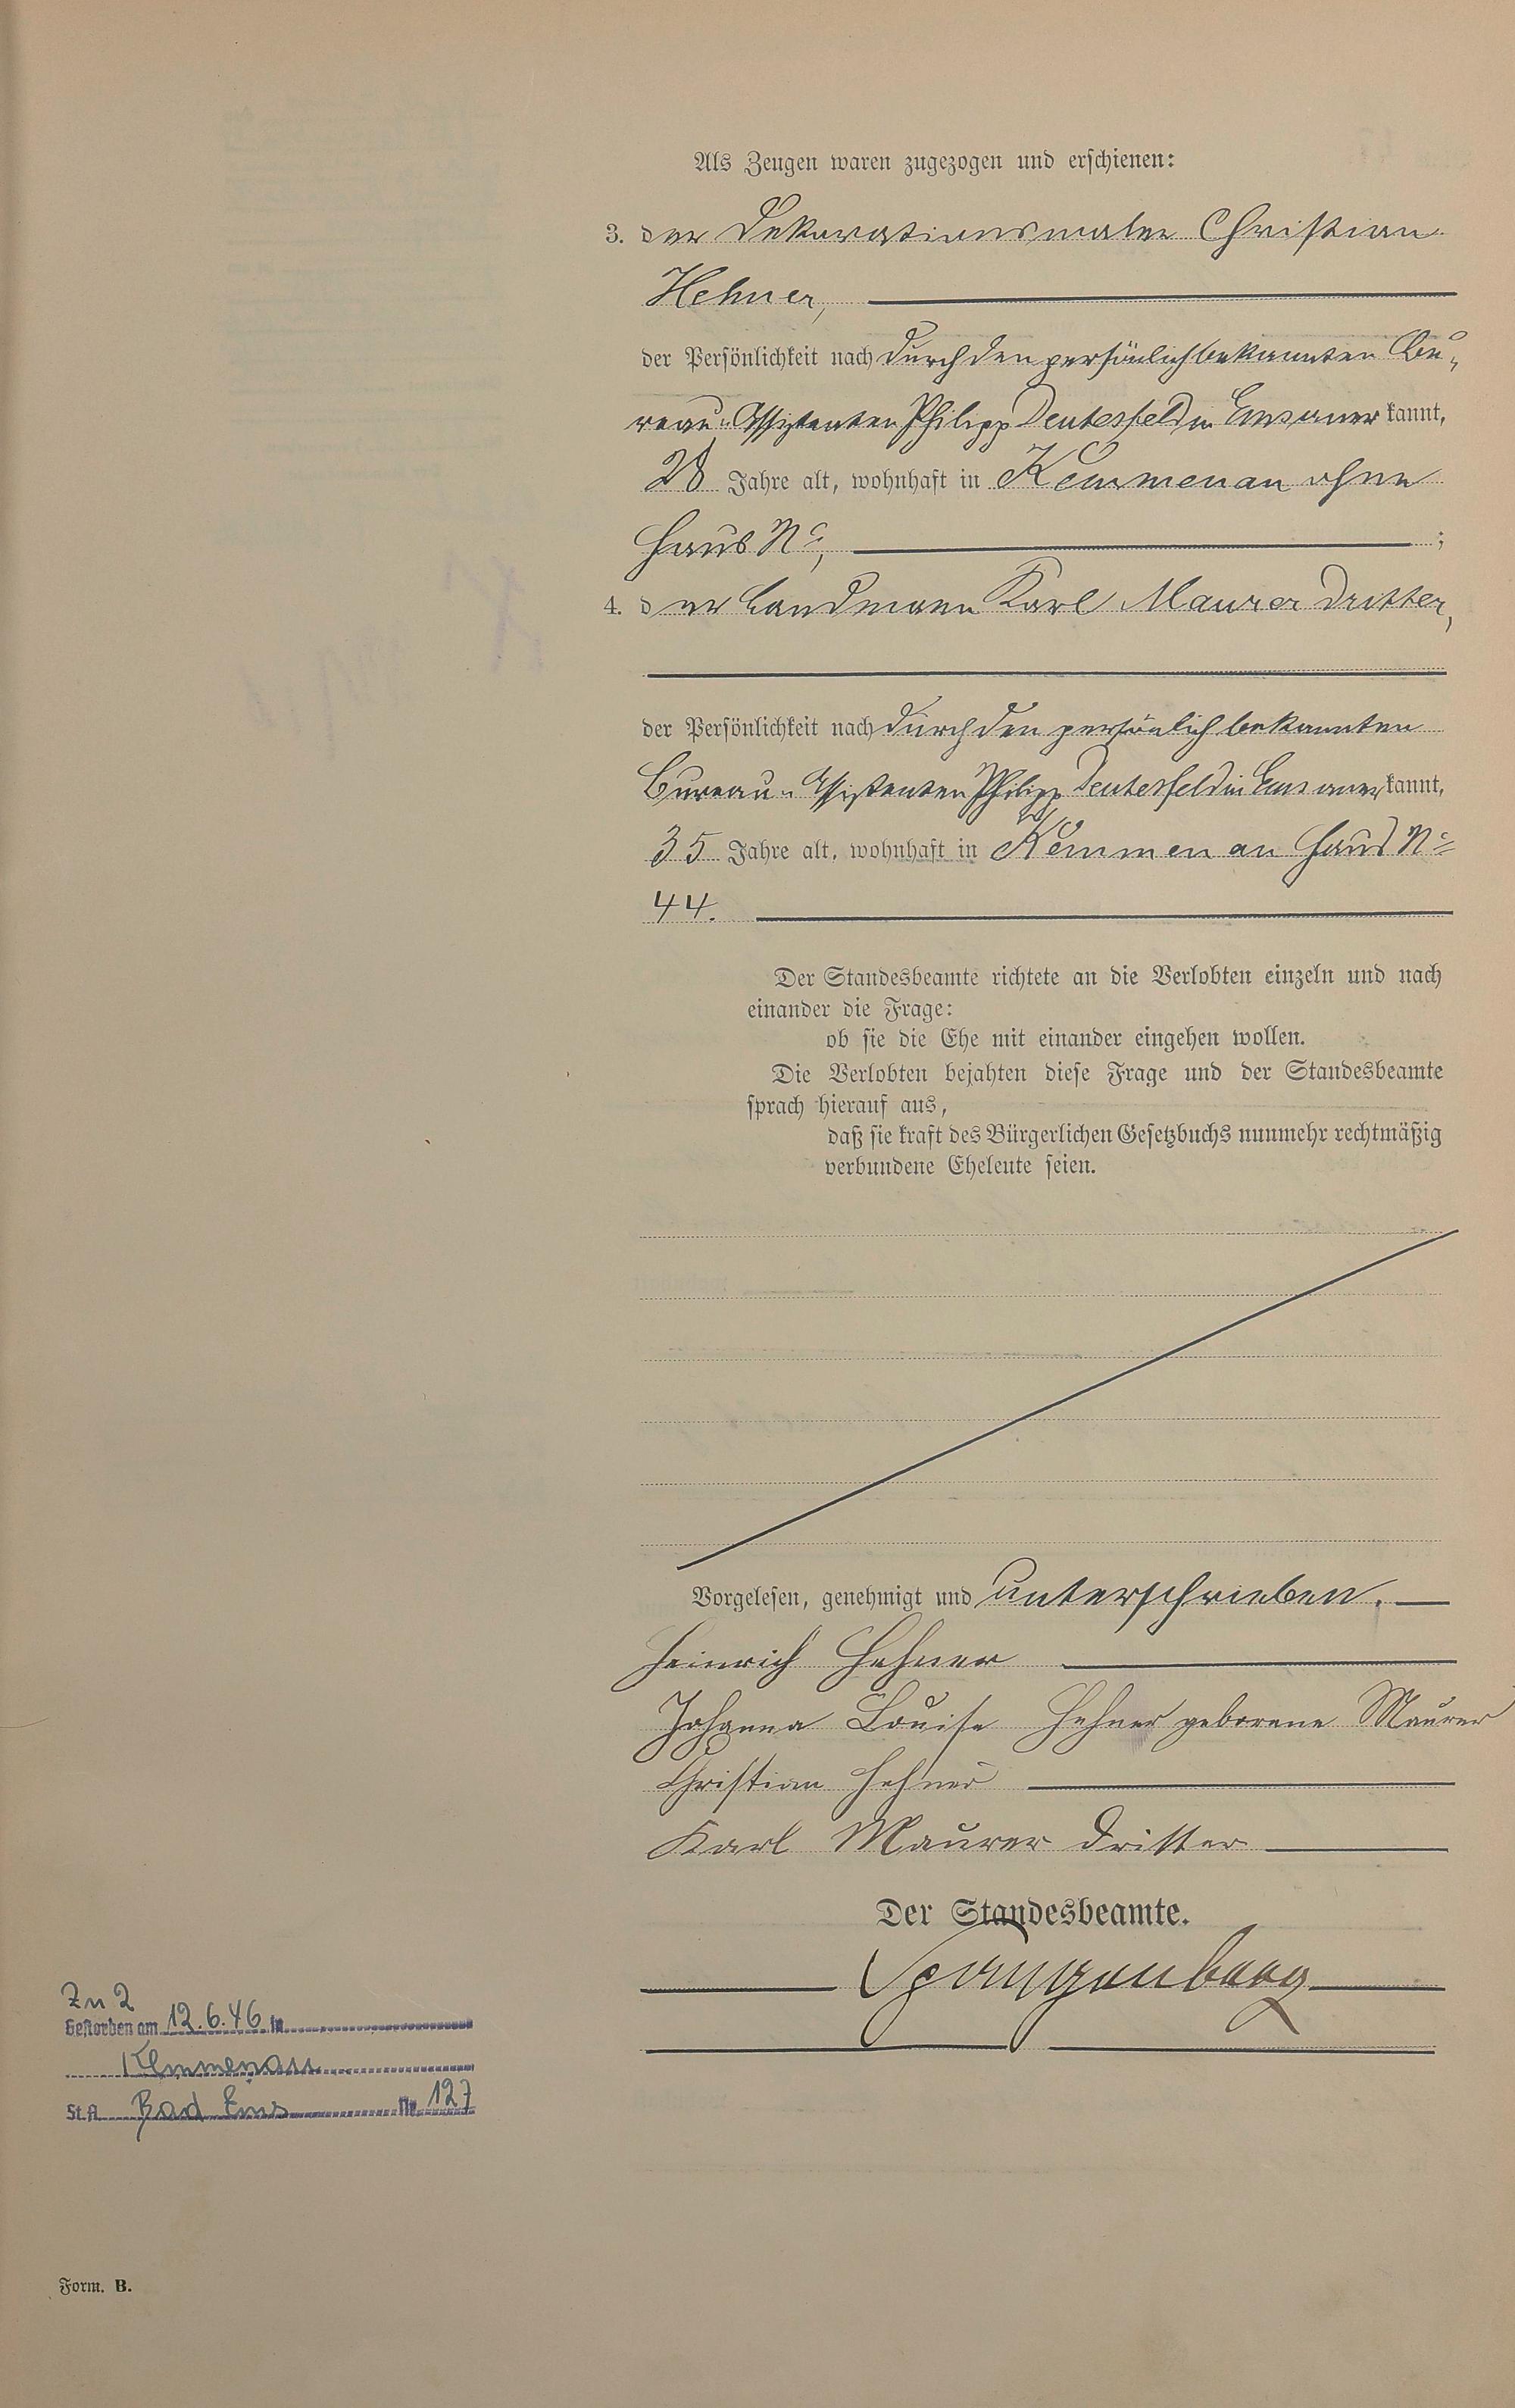 Als Zeugen waren zugezogen und erschienen:
3. der Dekorationsmaler Christian
Hehner,
der Persönlichkeit nach durch den persönlich bekannten Bu-
reau-Assistenten Philipp Deutesfeld in Ems anerkannt,
28 Jahre alt, wohnhaft in Kemmenau ohne
Haus No,
;
4. der Landmann Karl Maurer Dritter,
der Persönlichkeit nach durch den persönlich bekannten
Bureau-Assistenten Philipp Deutesfeld in Ems anerkannt,
35 Jahre alt, wohnhaft in Kemmenau Haus No
44.
Der Standesbeamte richtete an die Verlobten einzeln und nach
einander die Frage:
ob sie die Ehe mit einander eingehen wollen.
Die Verlobten bejahten diese Frage und der Standesbeamte
sprach hierauf aus,
daß sie kraft des Bürgerlichen Gesetzbuchs nunmehr rechtmäßig
verbundene Eheleute seien.
Vorgelesen, genehmigt und unterschrieben.
Heinrich Hehner
Johanna Louise Hehner geborene Maurer
Christian Hehner
Karl Maurer Dritter
Der Standesbeamte.
Spangenberg
Zu 2
Gestorben am 12.6.46 in
Kemmenau
St.A. Bad Ems Nr. 127
Form. B.